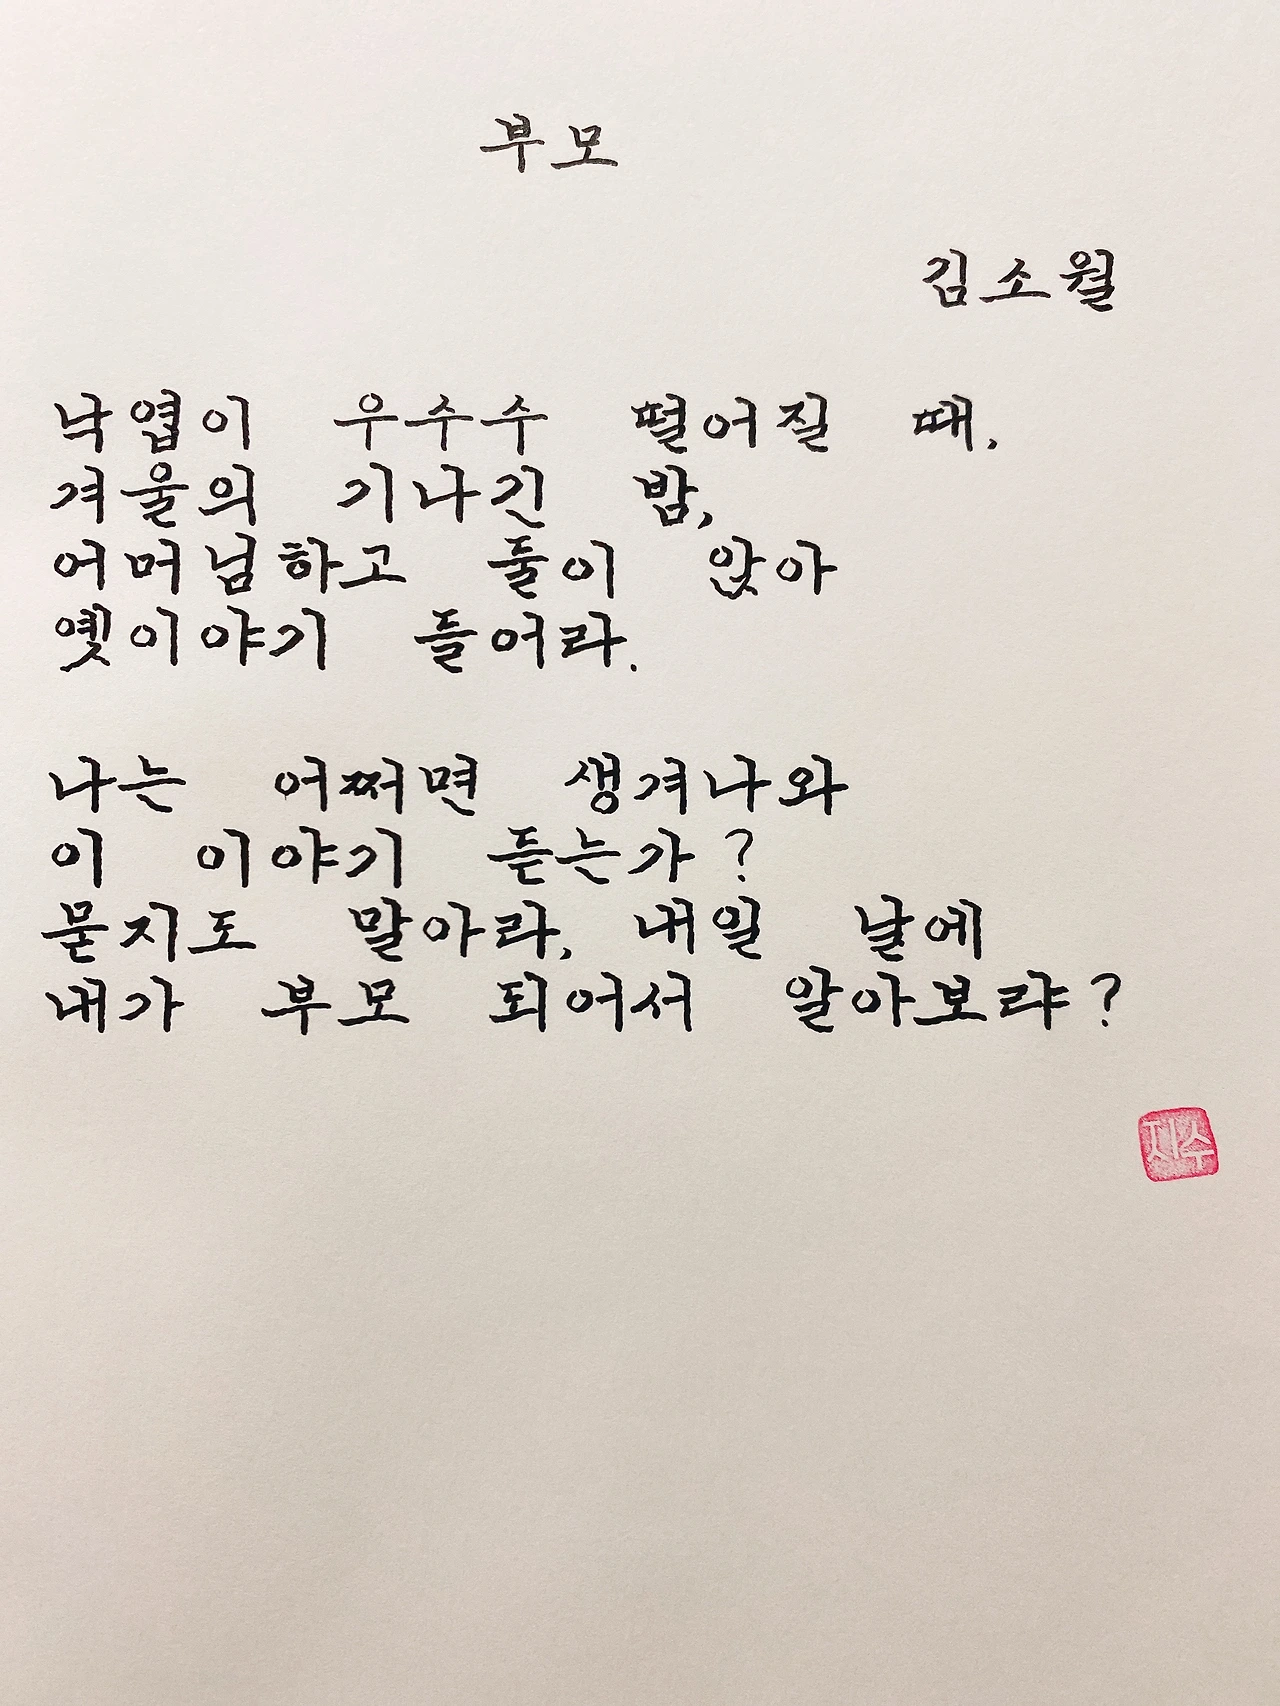 부모
김소월
낙엽이 우수수 떨어질 때,
겨울의 기나긴 밤,
어머님하고 둘이 앉아
옛이야기 들어라.
나는 어쩌면 생겨나와
이 이야기 듣는가?
묻지도 말아라, 내일 날에
내가 부모 되어서 알아보랴?
지수